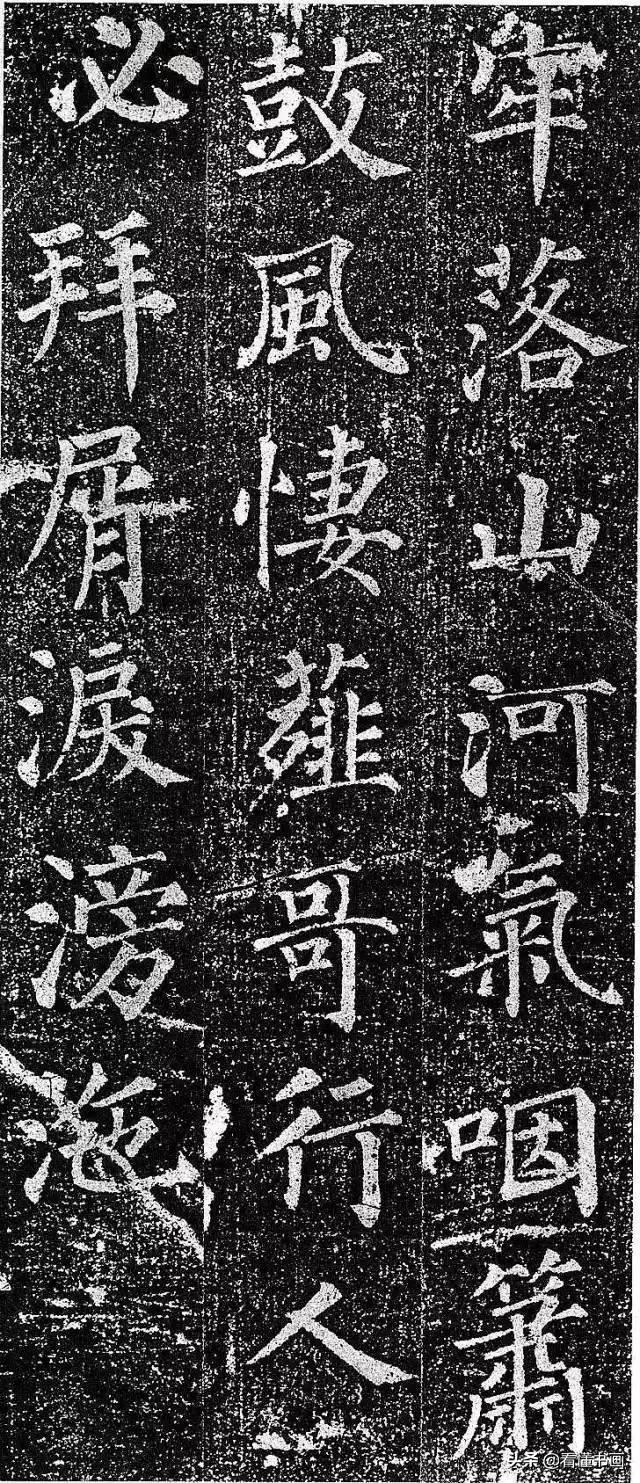 牢落山河氣咽簫
鼓風悽薤哥行人
必拜屑淚滂沲
头条@看懂书画